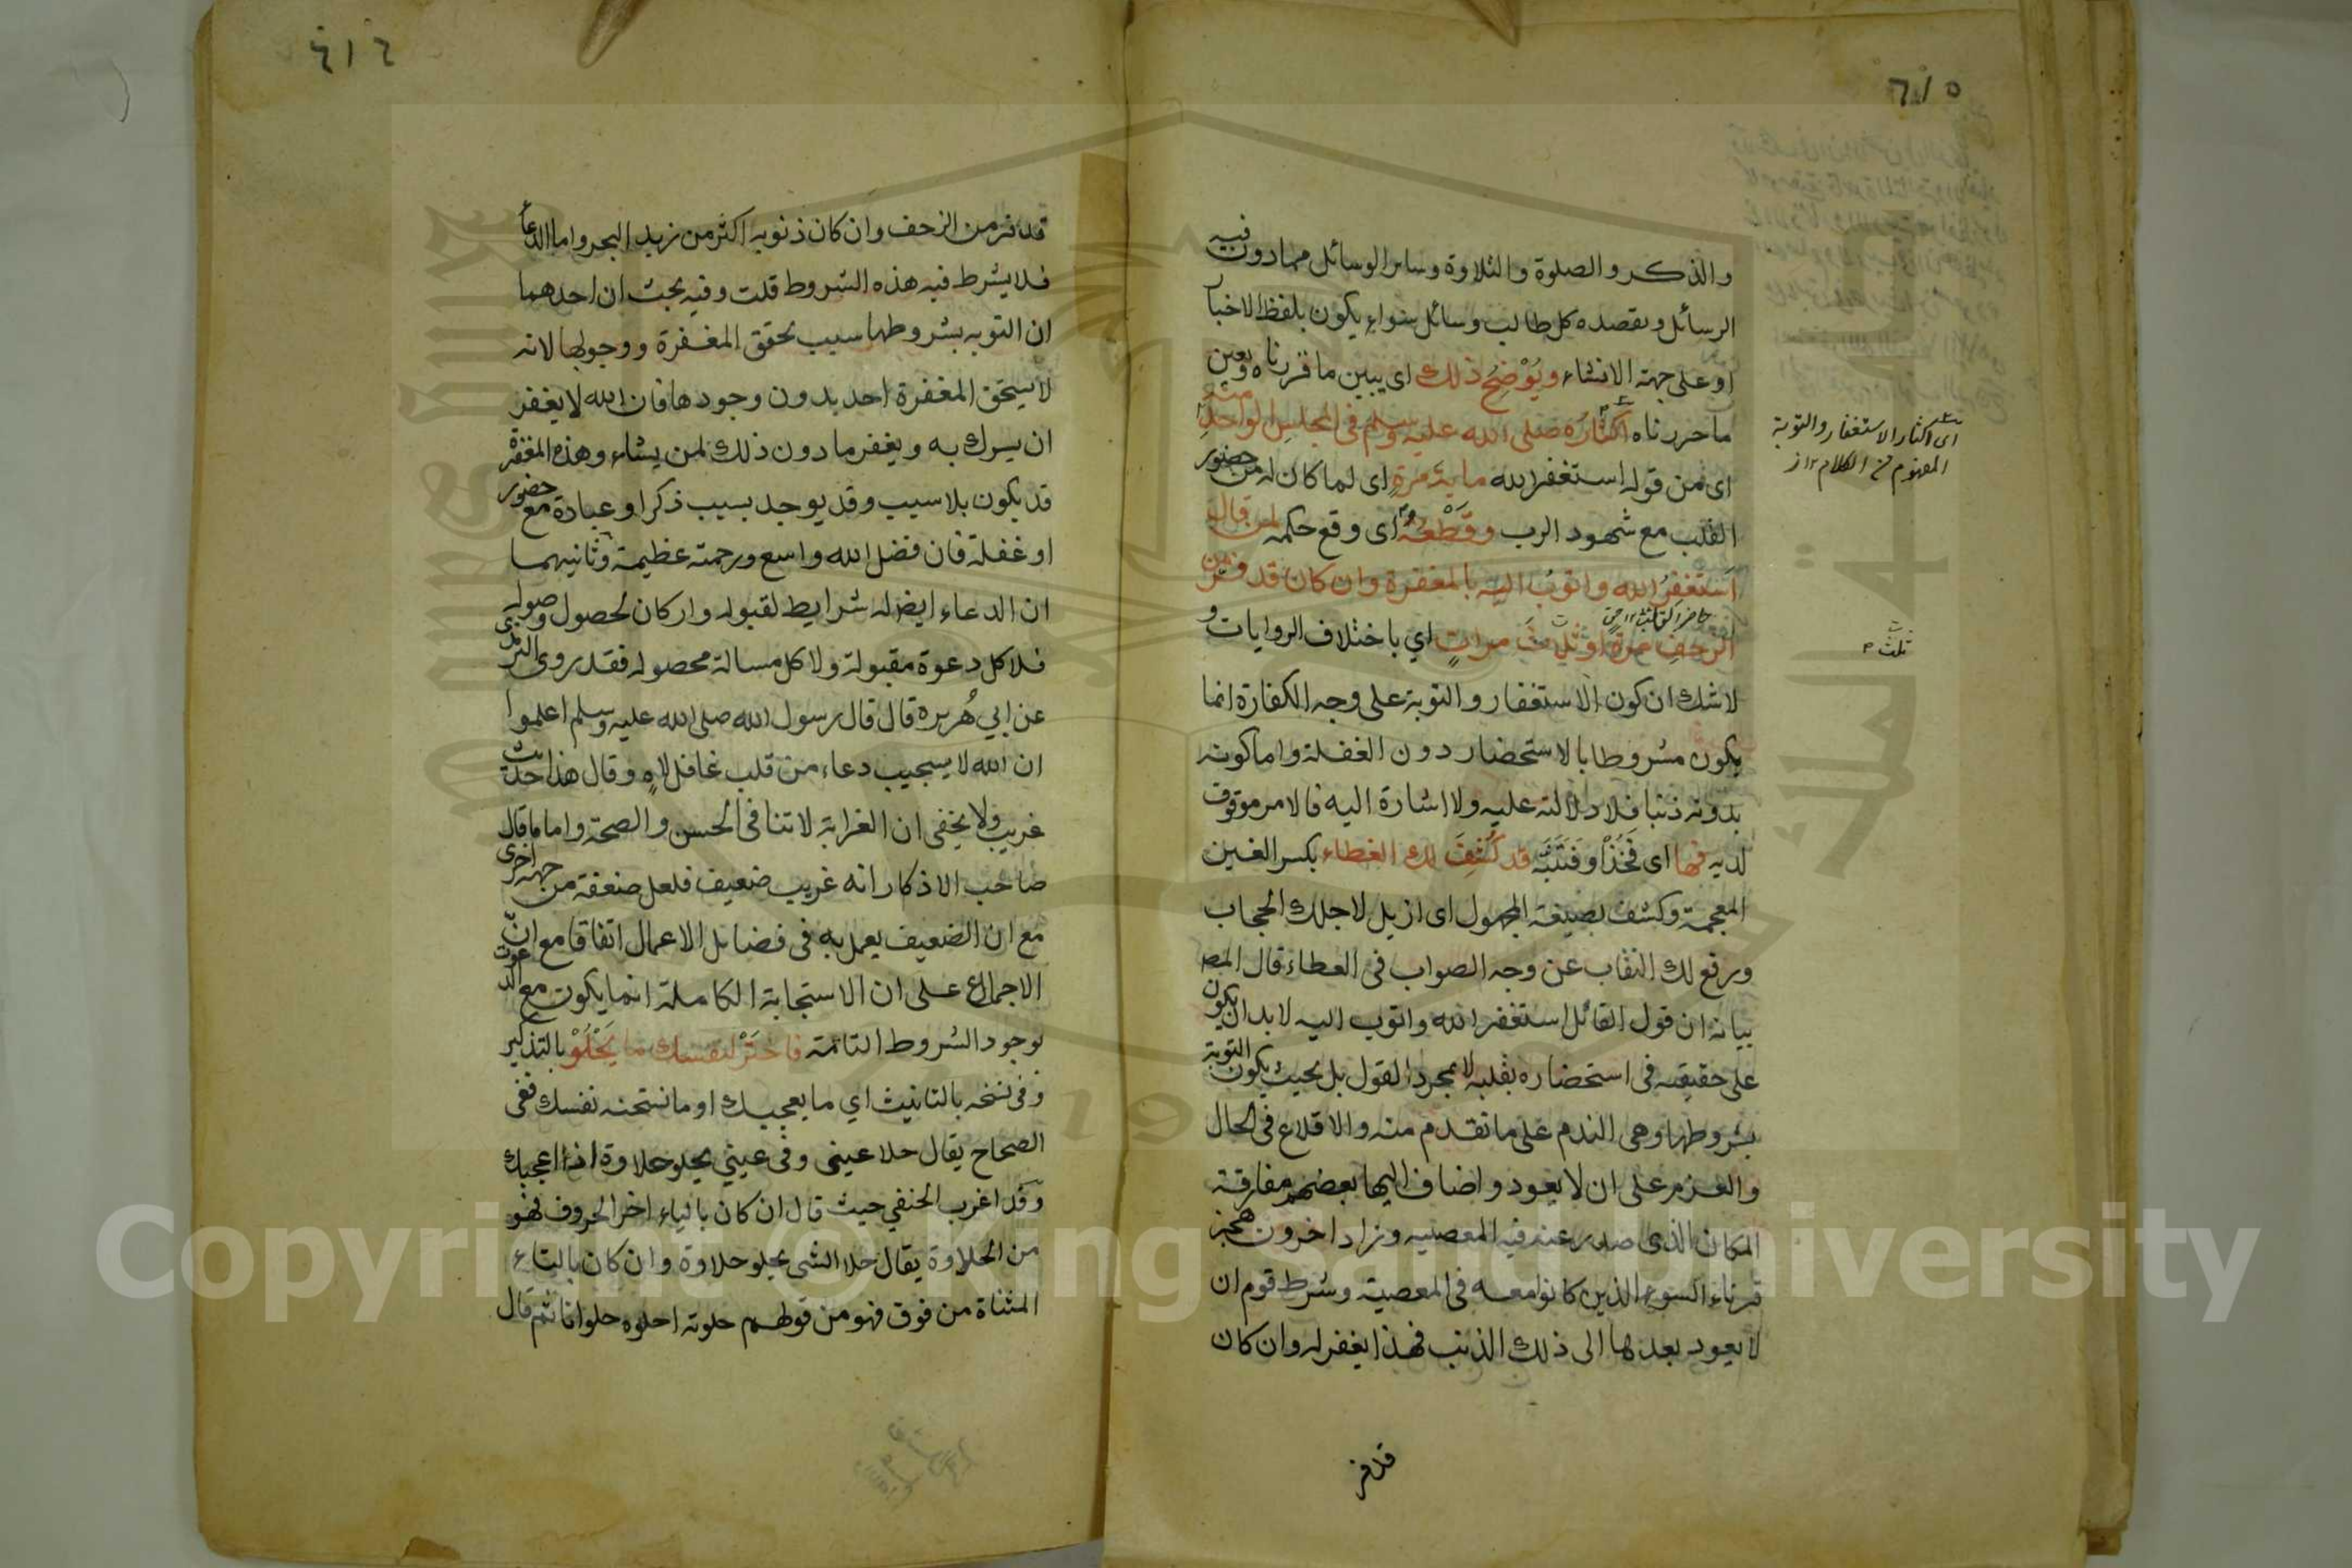 ٦١٥
والذكر والصلوة والتلاوة وسائر الوسائل مما دون فيه
الرسائل ويقصده كل طالب وسائل سواء يكون بلفظ الاخبار
او على جهة الانشاء ويُوْضِحُ ذلك اى يبين ما قررناه ويعين
ما حررناه اكثارُه صلى الله عليه وسلم في المجلس الواحدِ منه
اى من قوله استغفر الله ماية مرةٍ اى لما كان له من حضور
القلب مع شهود الرب وقَطْعُهُ اى وقع حكمه لمن قال
اَستغفِرُ الله واتوبُ اليه بالمغفرة وان كان قد فرّ من
الزحفِ مرة او ثلاثَ مراتٍ اي باختلاف الروايات و
لا شك ان كون الاستغفار والتوبة على وجه الكفارة انما
يكون مشروطا بالاستحضار دون الغفلة واما كونه
بدونه ذنبا فلا دلالة عليه ولا اشارة اليه فالامر موقوف
لديه فها اى فَخُذْ او فَتَنَبَّه قد كُشِفَ لك الغطاء بكسر الغين
المعجمة وكشف بصيغة المجهول اى ازيل لاجلك الحجاب
ورفع لك النقاب عن وجه الصواب فى العطاء قال المص
بيانه ان قول القائل استغفر الله واتوب اليه لا بد ان يكون
على حقيقته فى استحضاره بقلبه لا بمجرد القول بل بحيث يكون التوبة
بشروطها وهى الندم على ما تقدم منه والاقلاع فى الحال
والعزم على ان لا يعود واضاف اليها بعضهم مفارقة
المكان الذى صدر عنه فيه المعصيه وزاد اخرون هجر
قرناء السوء الذين كانوا معه فى المعصية وشرط قوم ان
لا يعود بعدها الى ذلك الذنب فهذا يغفر له وان كان
قد فر
اى اكثار الاستغفار والتوبة
المفهوم من الكلام ١٢ از
ثلث
٦١٦
قد فر من الزحف وان كان ذنوبه اكثر من زبد البحر واما الدعاء
فلا يشرط فيه هذه الشروط قلت وفيه بحث ان احدهما
ان التوبه بشروطها سبب تحقق المغفرة ووجوبها لانه
لا يستحق المغفرة احد بدون وجودها فان الله لا يغفر
ان يسرك به ويغفر ما دون ذلك لمن يشاء وهذه المغفرة
قد يكون بلا سبب وقد يوجد بسبب ذكر او عبادة مع حضور
او غفلة فان فضل الله واسع ورحمته عظيمة وثانيهما
ان الدعاء ايضا له شرايط لقبوله واركان لحصول وصوله
فلا كل دعوة مقبولة ولا كل مسالة محصوله فقد روى الترمذى
عن ابي هُريره قال قال رسول الله صلى الله عليه وسلم اعلموا
ان الله لا يسجيب دعاء من قلب غافل لاهٍ وقال هذا حديث
غريب ولا يخفى ان الغرابة لا تنافى الحسن والصحة واما ما قال
صاحب الاذكار انه غريب ضعيف فلعل ضعفه من جهة اخرى
مع ان الضعيف يعمل به فى فضايل الاعمال اتفاقا مع انّ
الاجماع على ان الاستجابة الكاملة انما يكون مع الدعوت
بوجود الشروط التامة فاخْتَرْ لنفسك ما يَحْلُوْ بالتذكير
وفى نسخه بالتانيث اي ما يعجبك او ما تستحنه نفسك ففى
الصحاح يقال حلا عينى وفى عيني يحلو حلاوة اذا اعجبك
وقد اغرب الحنفي حيث قال ان كان بالياء اخر الحروف فهو
من الحلاوة يقال حلا الشى يحلو حلاوة وان كان بالتاء
المثناة من فوق فهو من قولهم حلوته احلوه حلوانا ثم قال
Copyright © King Saud University